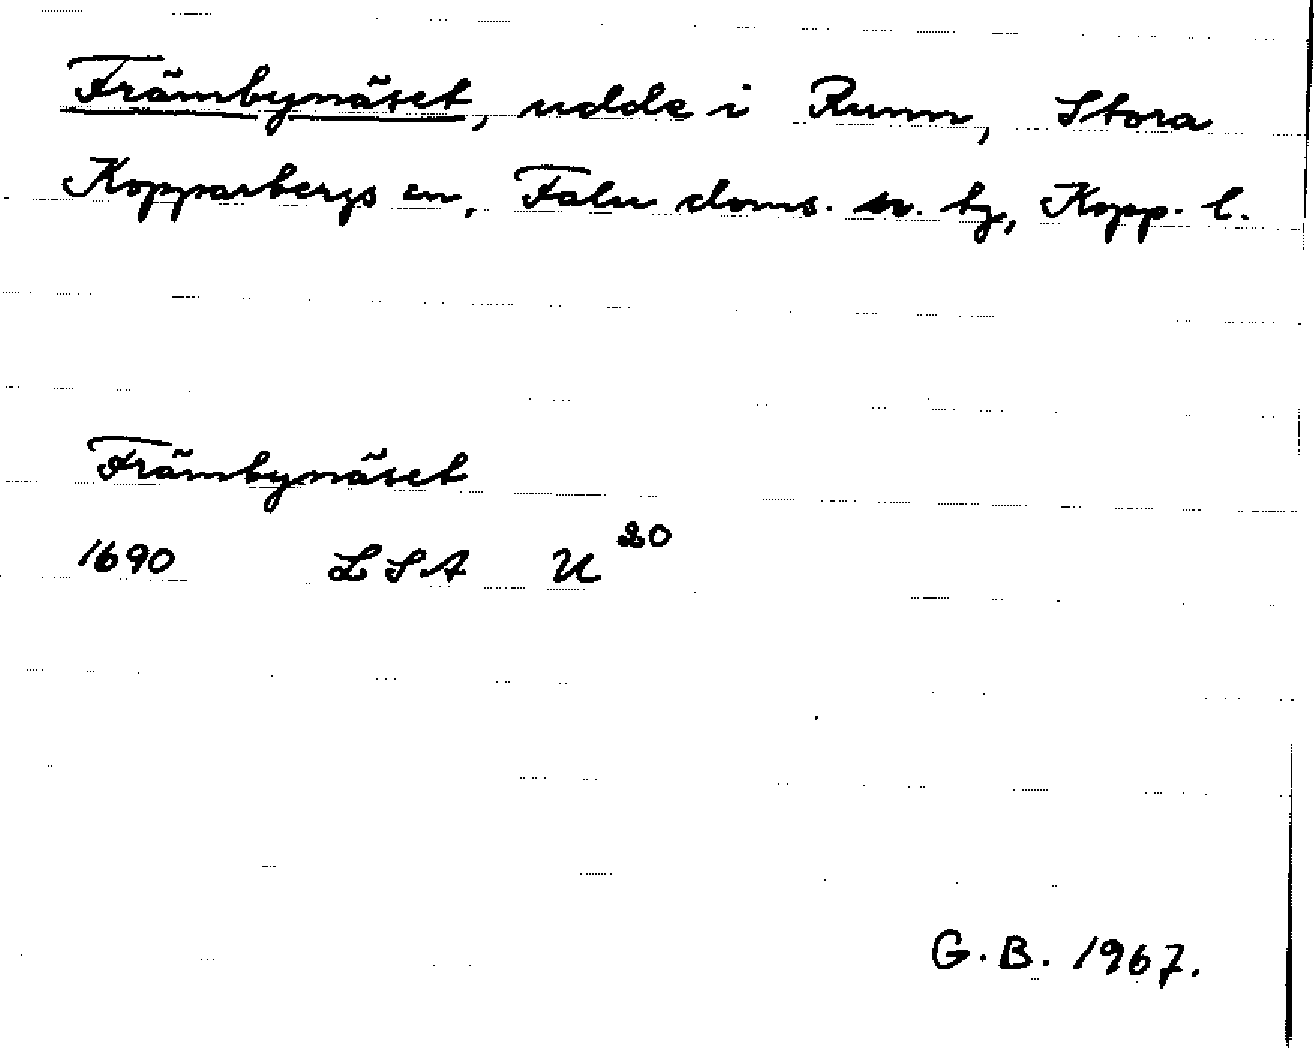 Främbynäset, udde i Runn, Stora
Kopparbergs sn, Falu doms. n. tg, Kopp. l.
Främbynäset
1690 LSA U 20
G. B. 1967.